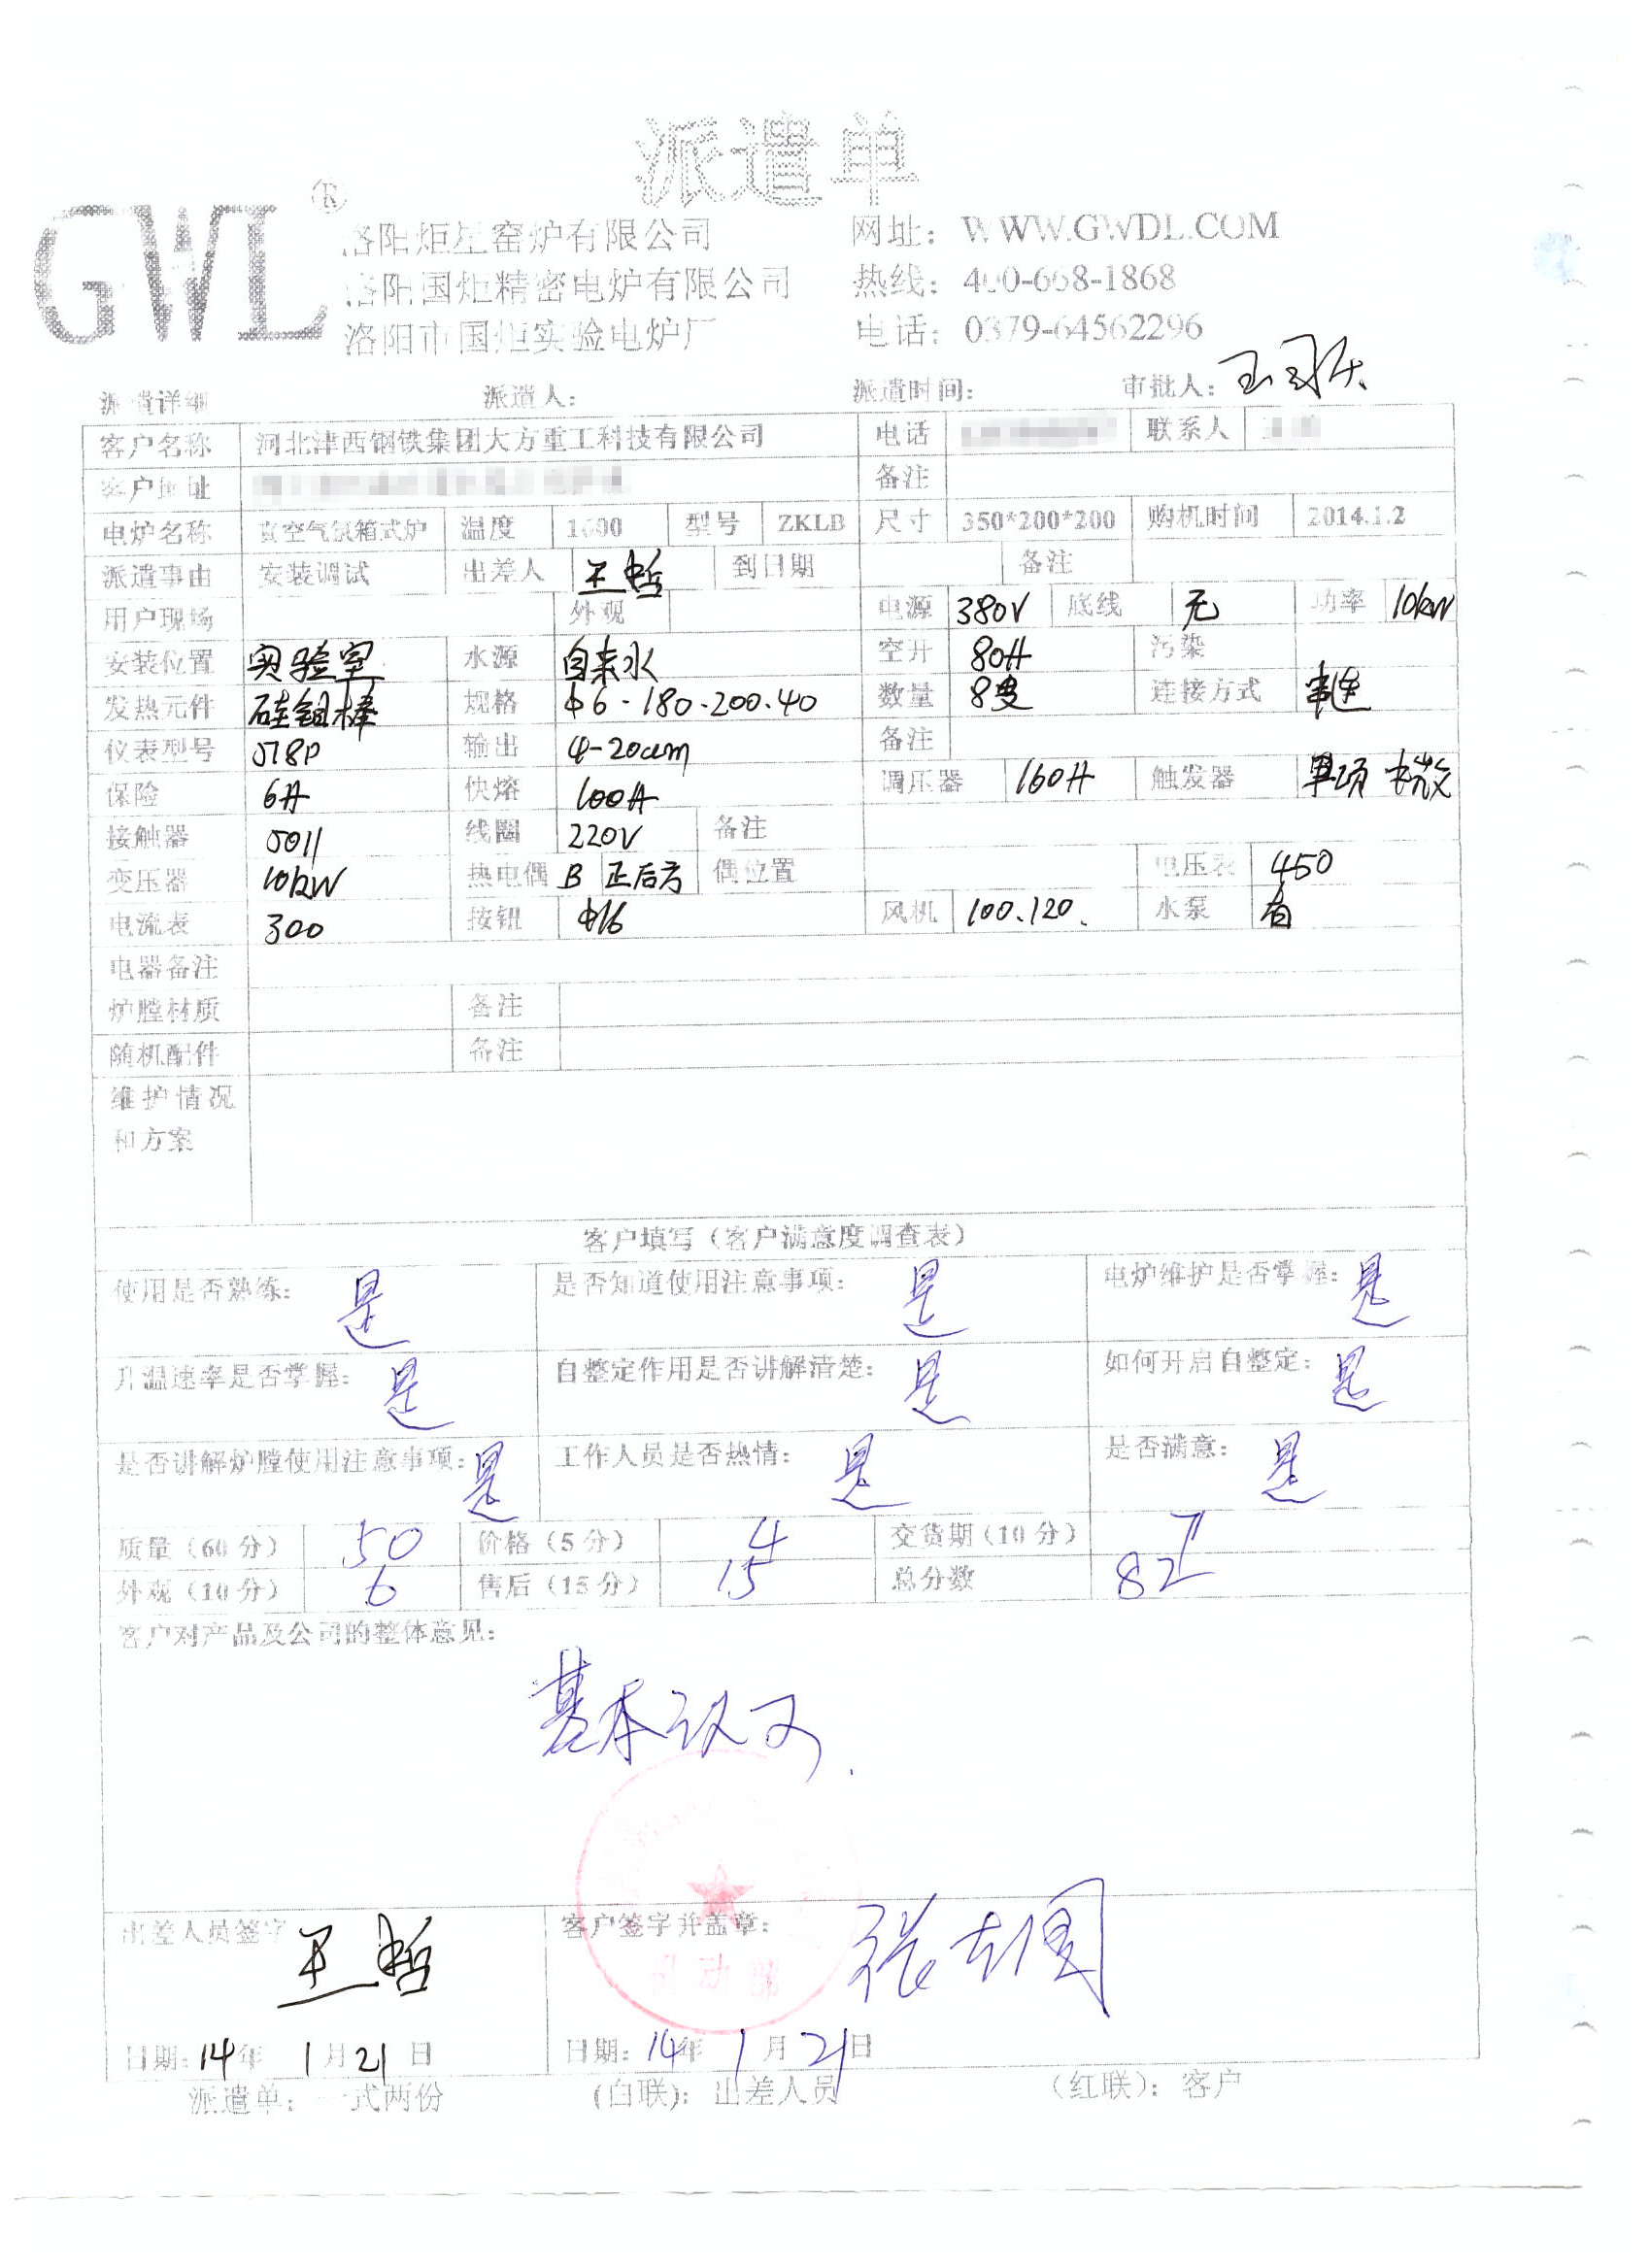 派遣单
GWL®
洛阳炬星窑炉有限公司 网址: WWW.GWDL.COM
洛阳国炬精密电炉有限公司 热线: 400-668-1868
洛阳市国炬实验电炉厂 电话: 0379-64562296
派遣详细 派遣人: 派遣时间: 审批人:
客户名称 河北津西钢铁集团大方重工科技有限公司 电话 联系人
客户地址 备注
电炉名称 真空气氛箱式炉 温度 1600 型号 ZKLB 尺寸 350*200*200 购机时间 2014.1.2
派遣事由 安装调试 出差人 王哲 到日期 备注
用户现场 外观 电源 380V 底线 无 功率 10kW
安装位置 实验室 水源 自来水 空开 80A 污染
发热元件 硅钼棒 规格 φ6-180.200.40 数量 8支 连接方式 串连
仪表型号 518P 输出 4-20am 备注
保险 6A 快熔 100A 调压器 160A 触发器 单项
接触器 5011 线圈 220V 备注
变压器 10kW 热电偶 B 正后方 偶位置 电压表 450
电流表 300 按钮 φ16 风机 100.120. 水泵 有
电器备注
炉膛材质 备注
随机配件 备注
维护情况
和方案
客户填写（客户满意度调查表）
使用是否熟练: 是 是否知道使用注意事项: 是 电炉维护是否掌握: 是
升温速率是否掌握: 是 自整定作用是否讲解清楚: 是 如何开启自整定: 是
是否讲解炉膛使用注意事项: 是 工作人员是否热情: 是 是否满意: 是
质量（60分） 50 价格（5分） 4 交货期（10分） 7
外观（10分） 6 售后（15分） 15 总分数 82
客户对产品及公司的整体意见:
基本认可.
出差人员签字 王哲 客户签字并盖章:
日期: 14年 1月21日 日期: 14年 1月21日
派遣单: 一式两份 (白联): 出差人员 (红联): 客户